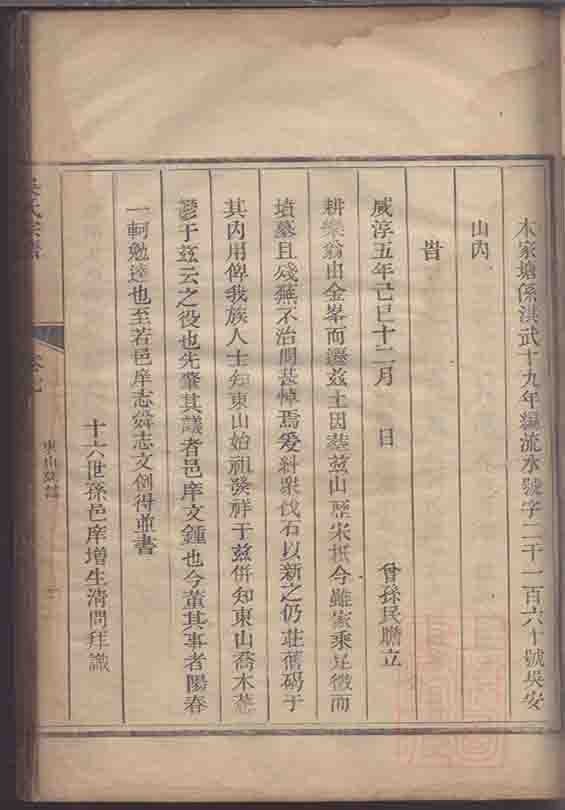 木家塘係洪武十九年編流水號字二千一百六十號吳安
山內
昔
咸淳五年己巳十二月 日 曾孫民瞻立
耕樂翁由金峯而遷茲土因墓茲山歷宋抵今雖家乘足徵而
墳墓且殘蕪不治問甚悼焉爰糾眾伐石以新之仍莊舊碣于
其內用俾我族人士知東山始祖發祥于茲併知東山喬木蒼
鬱于茲云之役也先肇其議者邑庠文鍾也今董其事者陽春
一軻勉達也至若邑庠志舜志文例得並書
十六世孫邑庠增生清問拜識
吳氏宗譜
東山